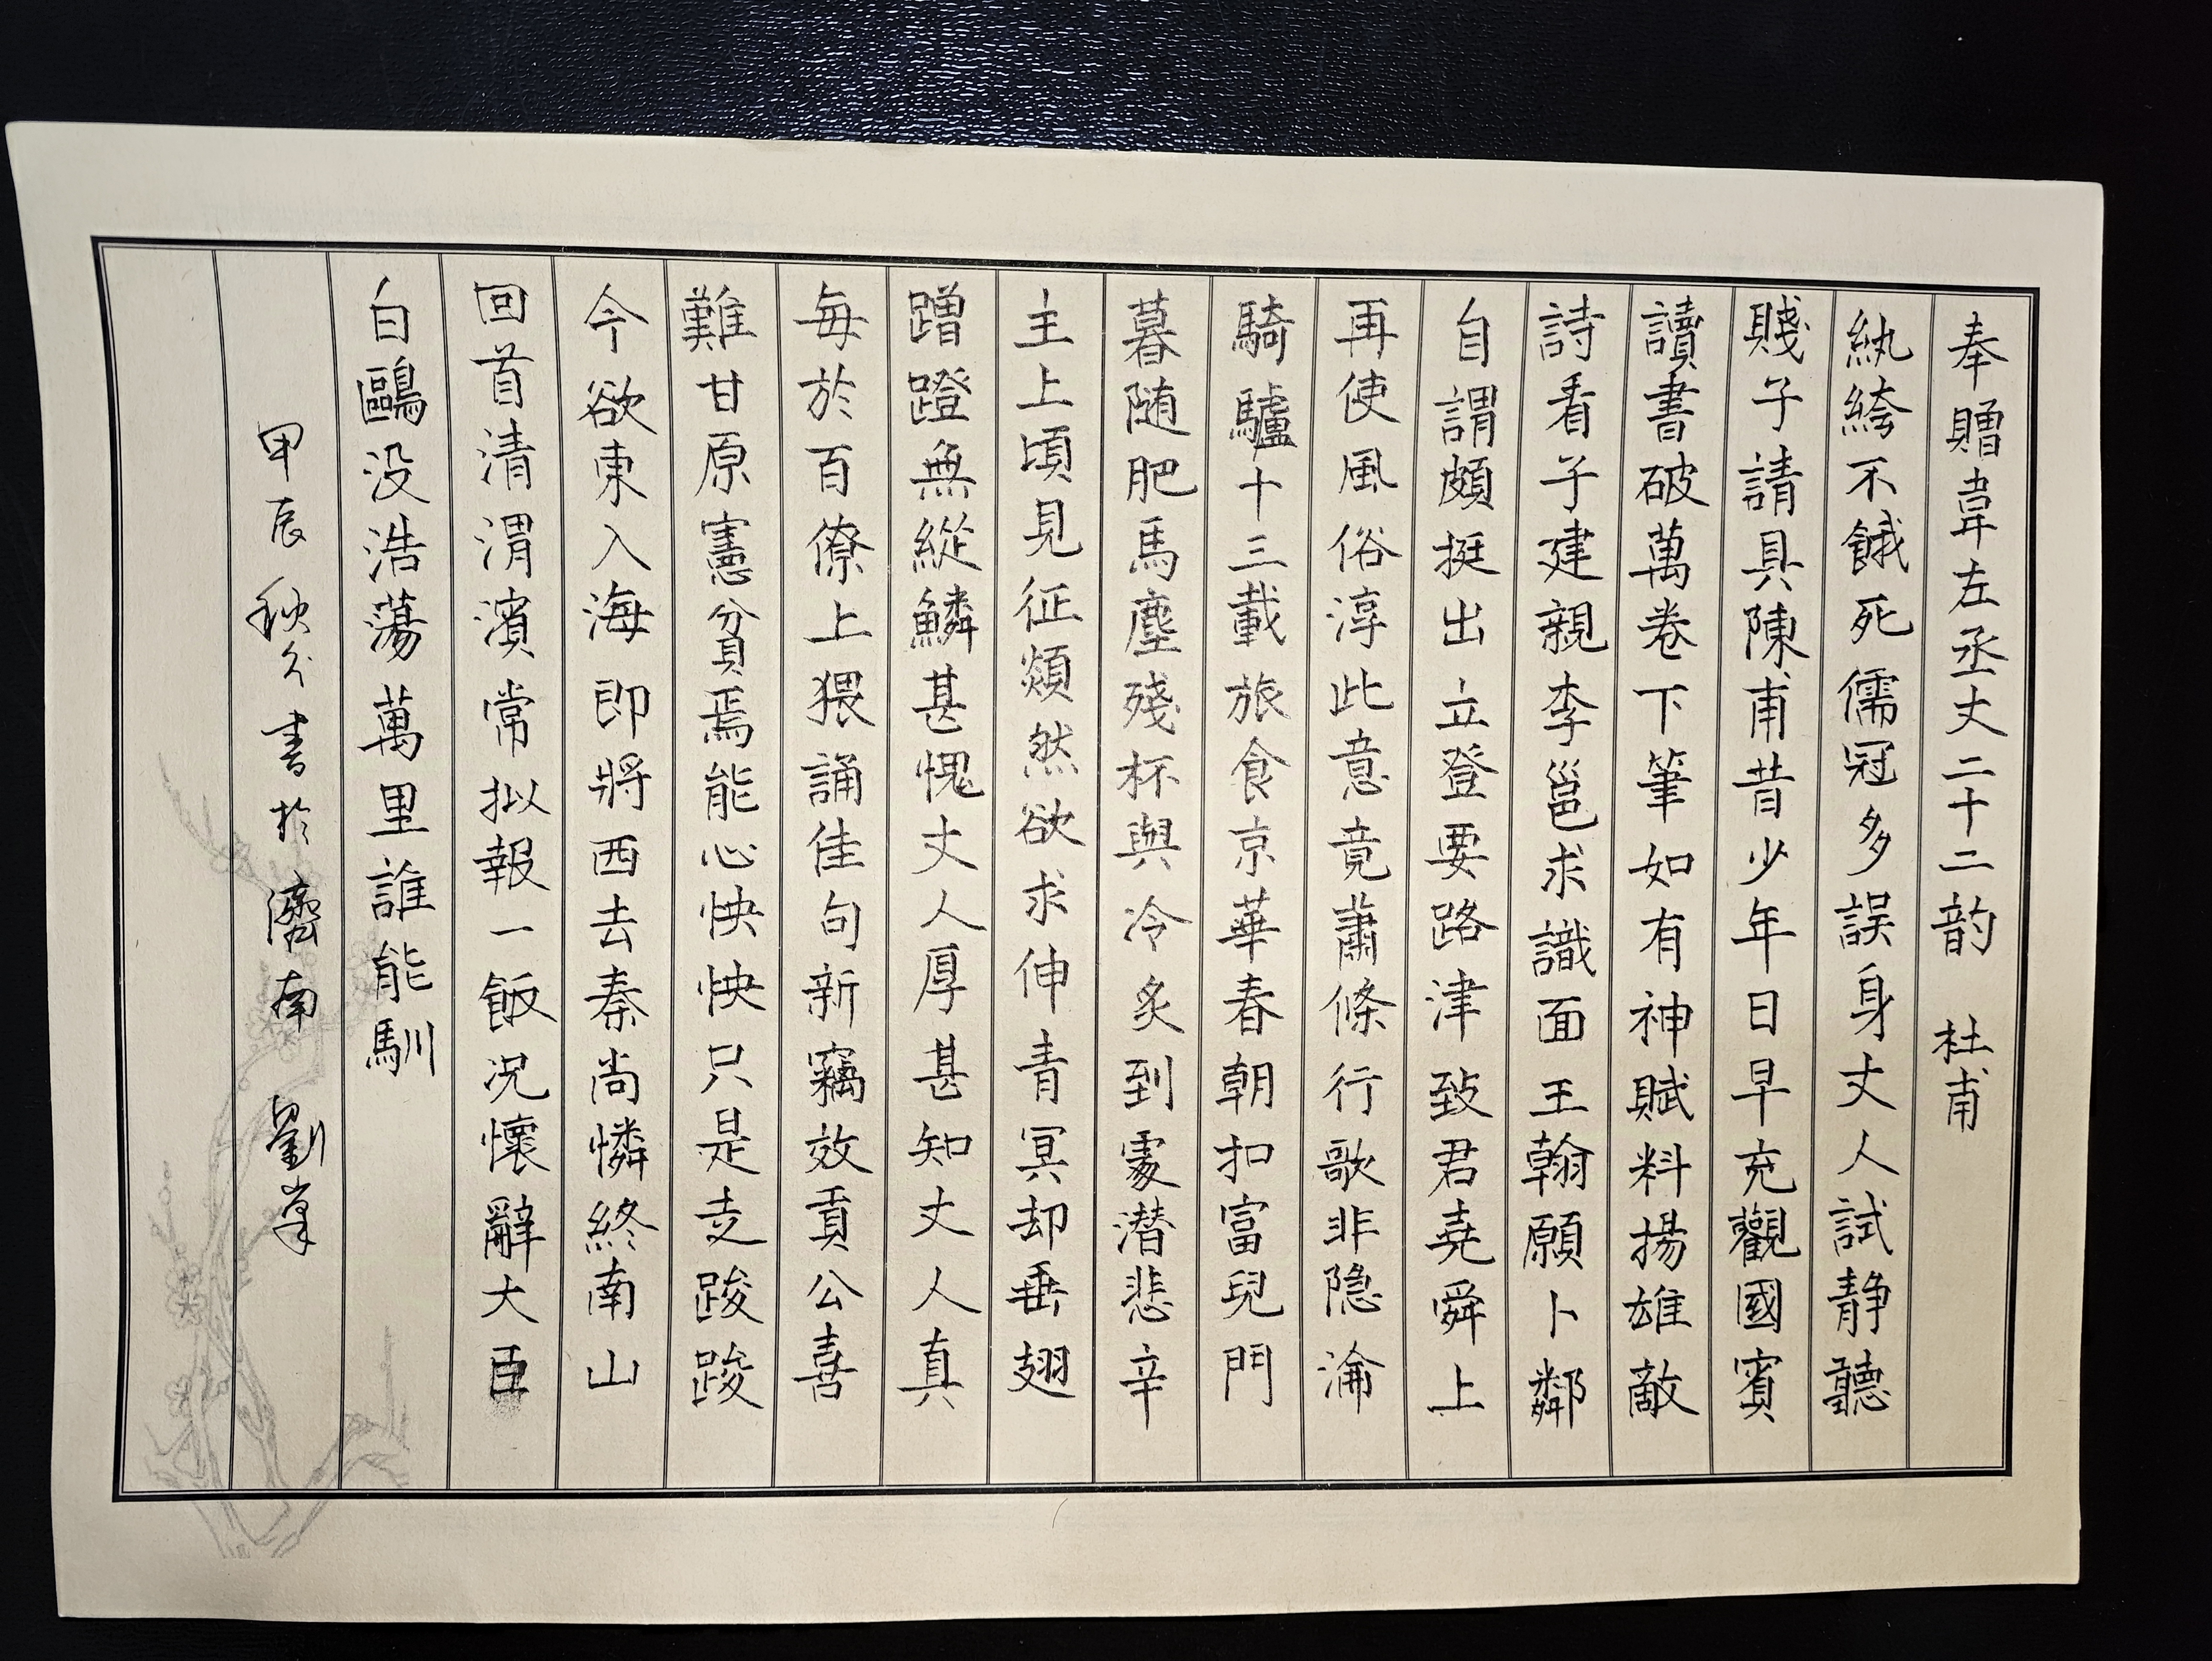 奉贈韋左丞丈二十二韵 杜甫
紈絝不餓死儒冠多誤身丈人試静聽
賤子請具陳甫昔少年日早充觀國賓
讀書破萬卷下筆如有神賦料揚雄敵
詩看子建親李邕求識面王翰願卜鄰
自謂頗挺出立登要路津致君堯舜上
再使風俗淳此意竟蕭條行歌非隐淪
騎驢十三載旅食京華春朝扣富兒門
暮随肥馬塵殘杯與冷炙到處潜悲辛
主上頃見征歘然欲求伸青冥却垂翅
蹭蹬無縱鱗甚愧丈人厚甚知丈人真
每於百僚上猥誦佳句新竊效貢公喜
難甘原憲貧焉能心怏怏只是走踆踆
今欲東入海即將西去秦尚憐終南山
回首清渭濱常拟報一飯况懷辭大臣
白鷗没浩蕩萬里誰能馴
甲辰秋分書於濟南 劉峯